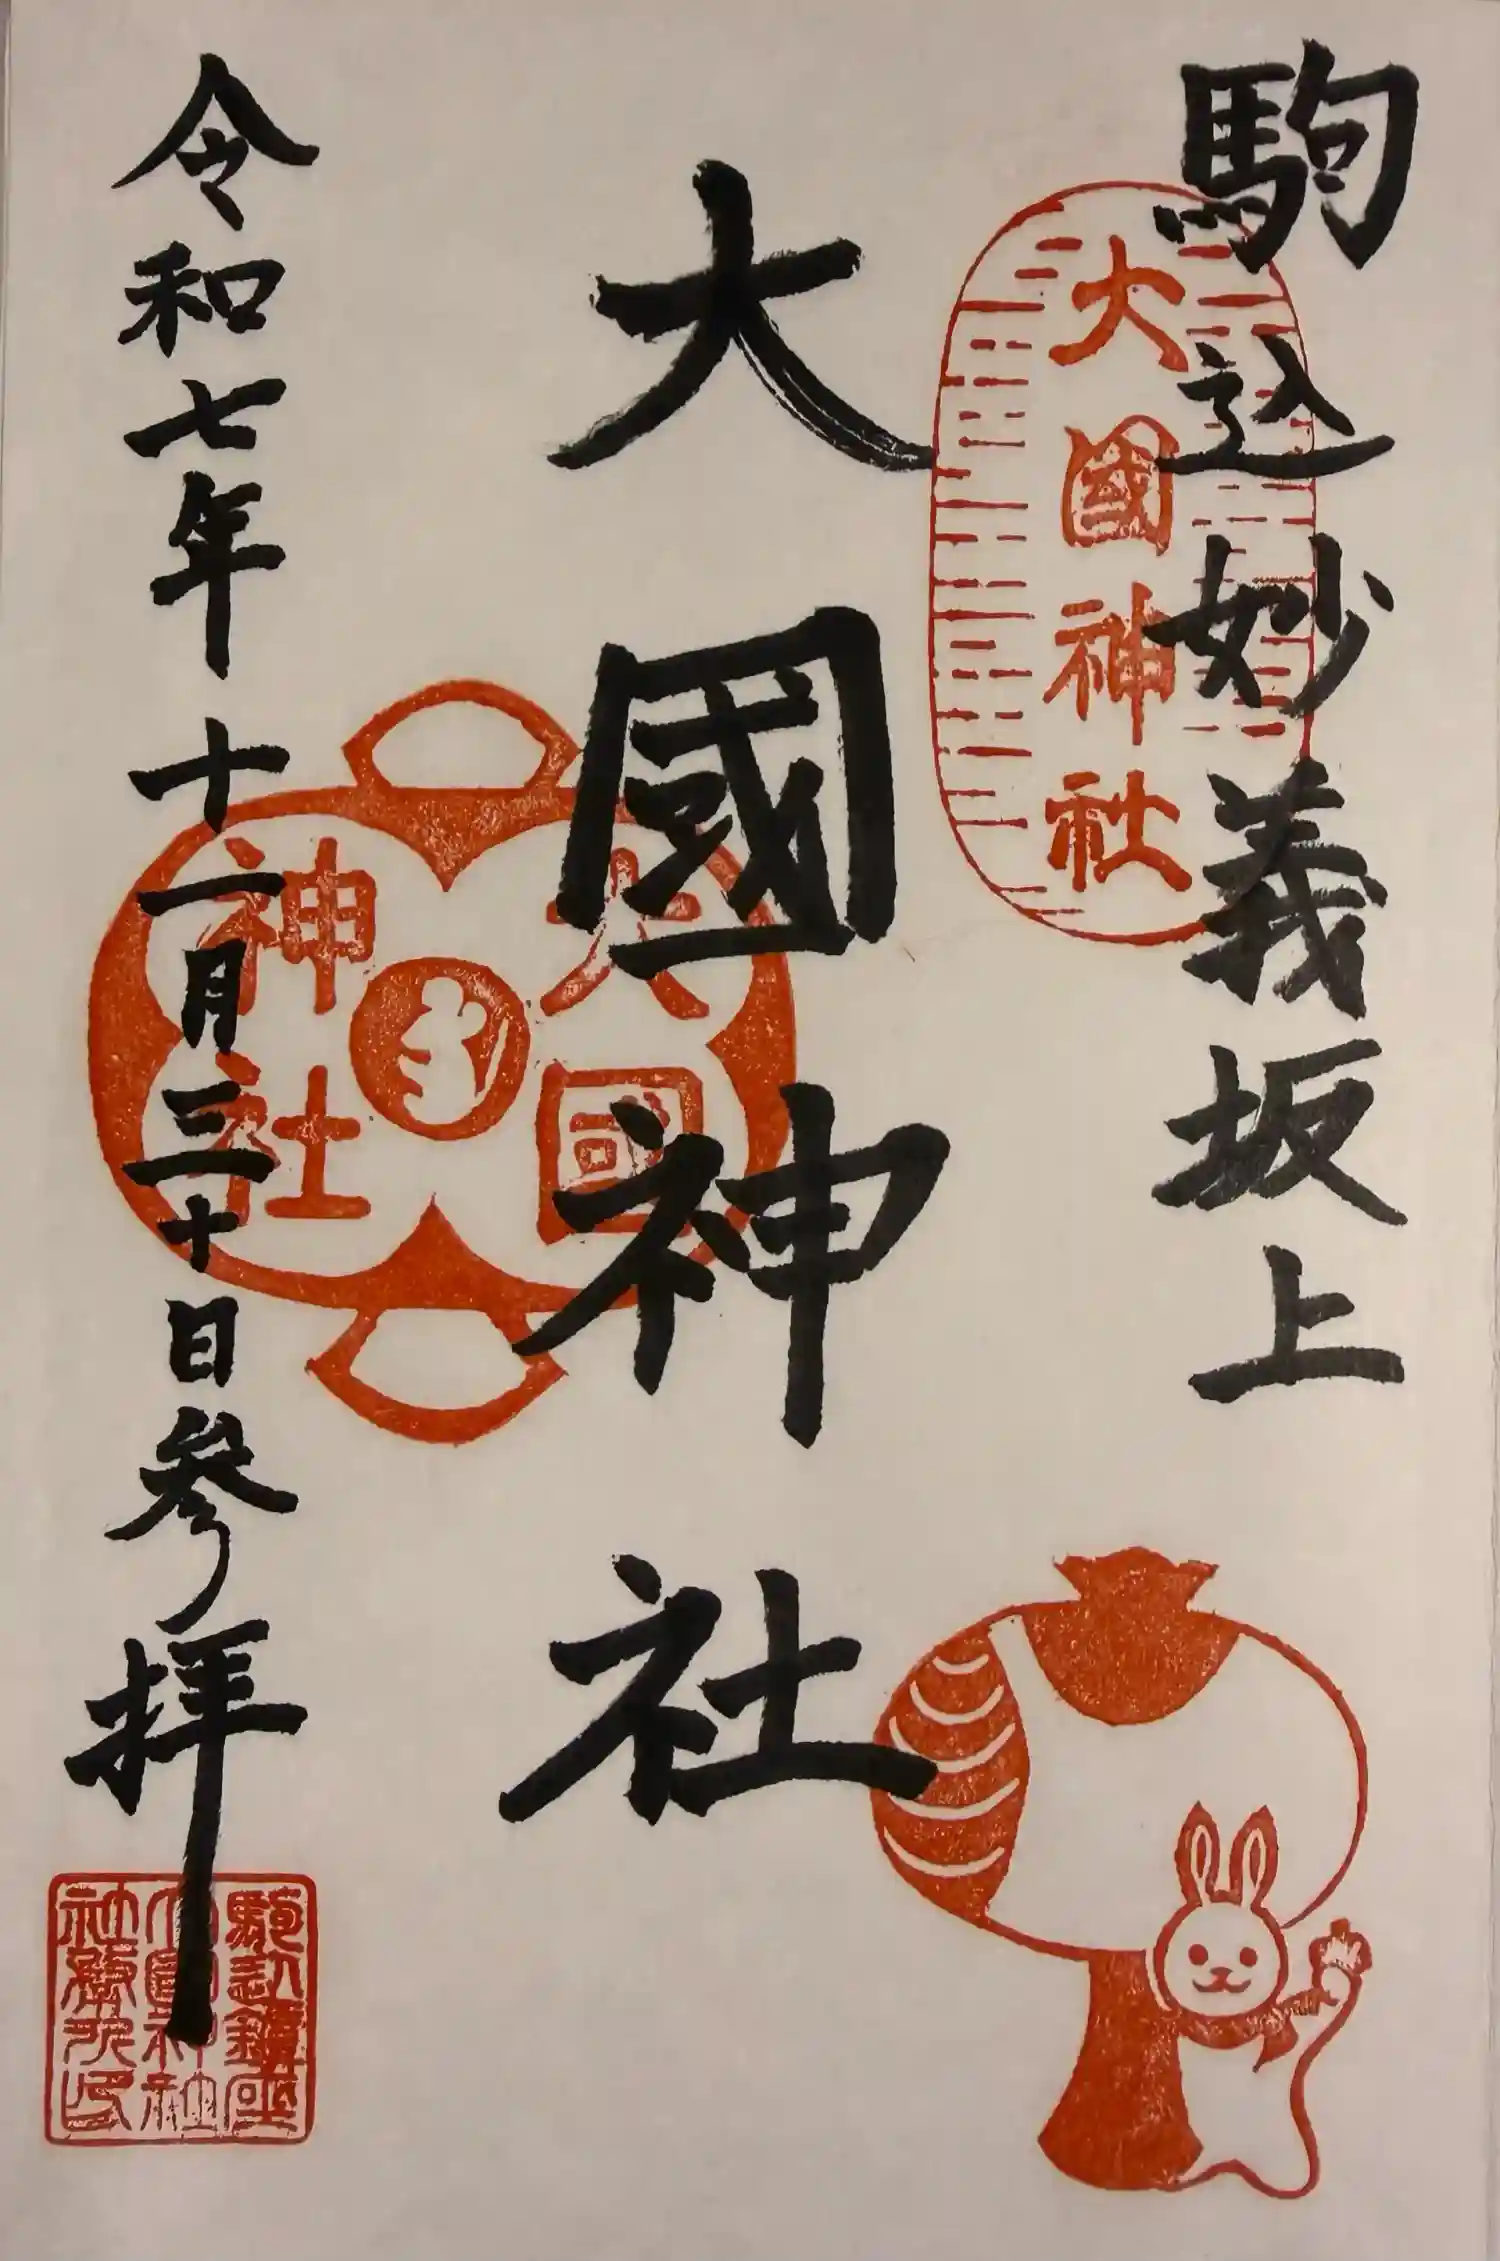 駒込妙義坂上
大國神社
大國神社
大國
神社
令和七年十一月三十日参拝
駒込鎮座
大國神社
社務所印